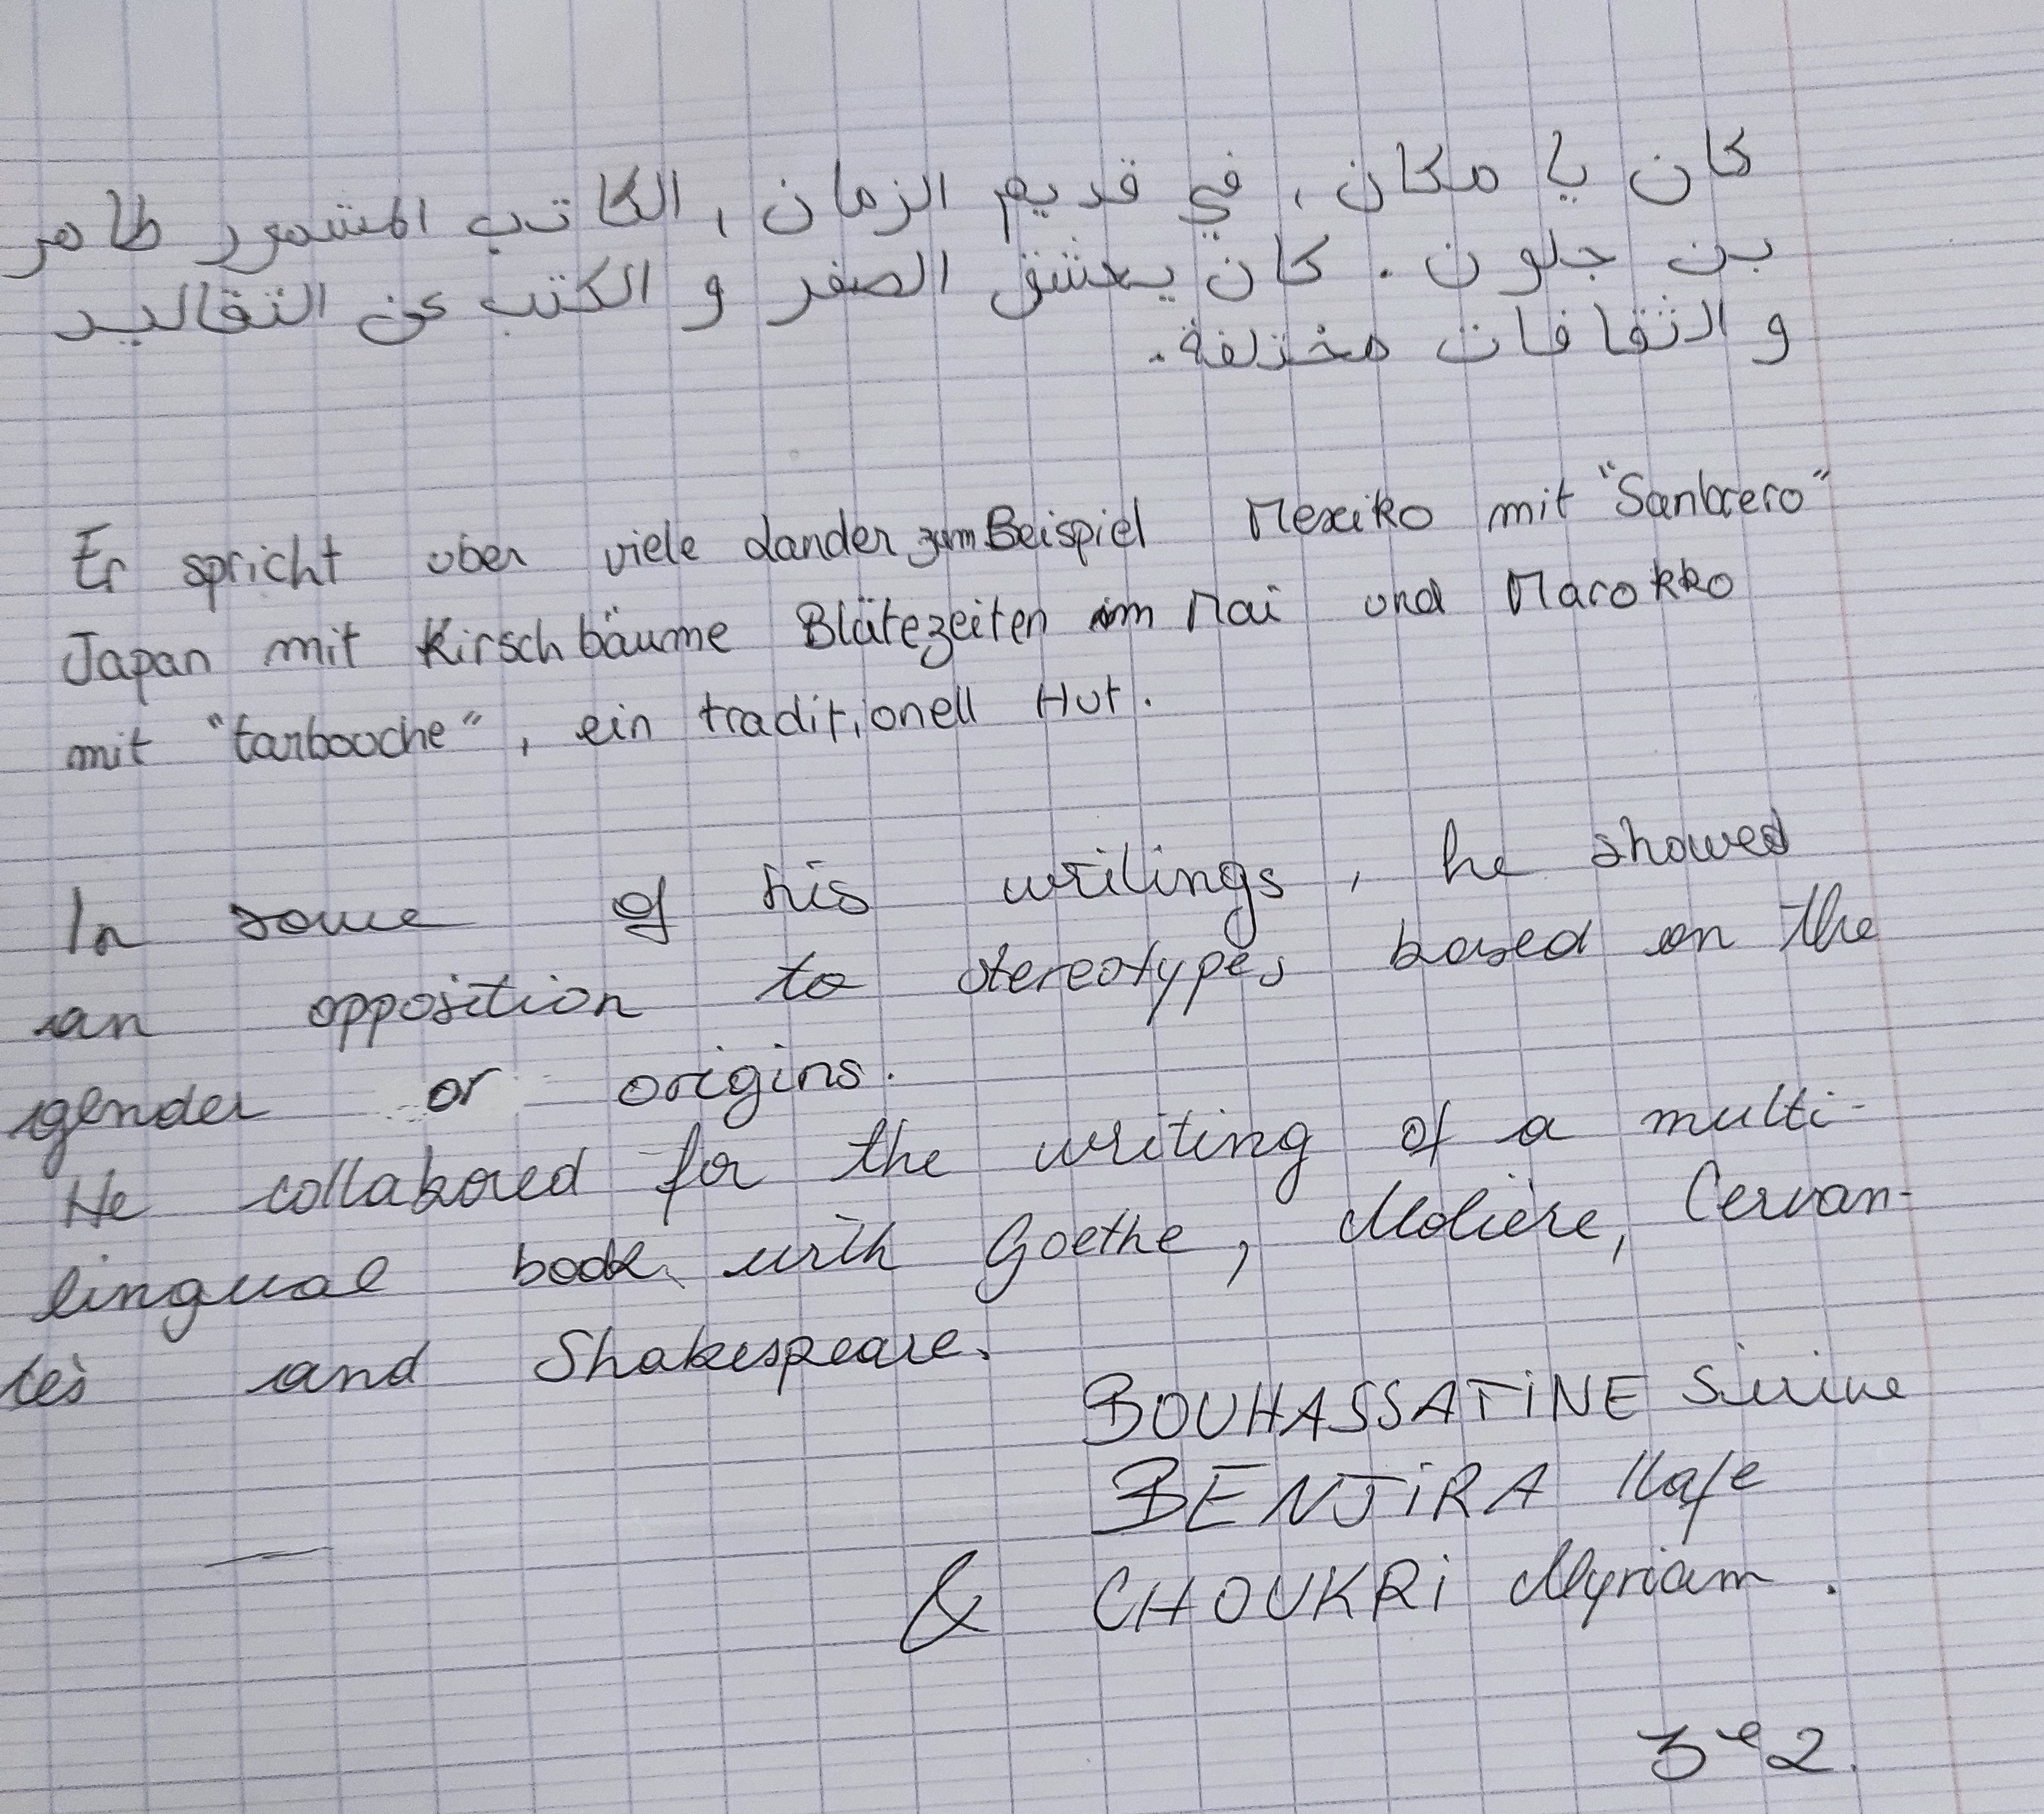 كان يا مكان، في قديم الزمان، الكاتب المشهور طاهر
بن جلون. كان يعشق الصفر و الكتب عن التقاليد
و الثقافات مختلفة.
Er spricht uber viele Lander zum Beispiel Mexiko mit "Sanbrero"
Japan mit Kirschbäume Blätezeiten im Mai und Marokko
mit "tarbouche", ein traditionell Hut.
In some of his writings, he showed
an opposition to stereotypes based on the
gender or origins.
He collabored for the writing of a multi-
lingual book with Goethe, Molière, Cervan-
tès and Shakespeare.
BOUHASSATINE Sirine
BENJIRA
& CHOUKRI Myriam.
3e2.